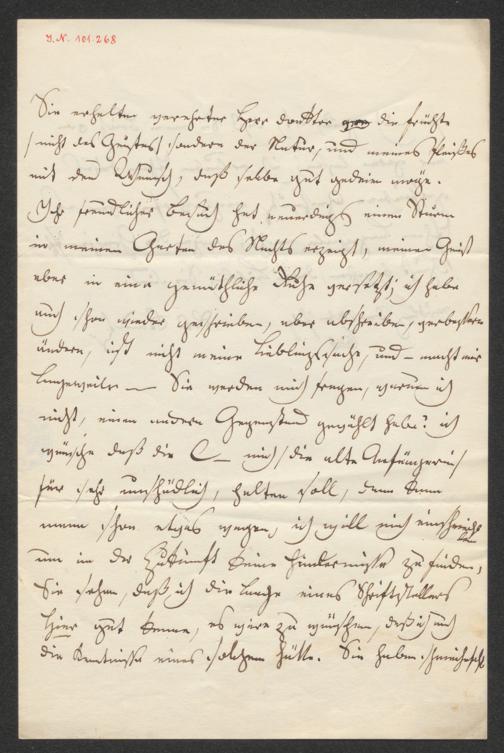 I.N. 101.268
Sie erhalten verehrter Herr Docktor die Früchte
/nicht des Geistes/ sondern der Natur, und meines Fleißes
mit dem Wunsch, daß selbe gut gedeien möge.
Ihr freundlicher Besuch hat neuerdings einen Sturm
in meinem Garten des Nachts erzeigt, meinen Geist
aber in eine gemüthliche Ruhe versetzt; ich habe
auch schon wieder geschrieben, aber abschreiben, verbessern
ändern, ist nicht meine Lieblingssache, und – macht mir
Langeweile — Sie werden mich fragen, warum ich
nicht, einen andern Gegenstand gewählt habe? ich
wünsche daß die C— mich /die alte Anfängerin/
für sehr unschädlich, halten soll, dann kann
mann schon etwas wagen, ich will mich einschmeicheln
um in der Zukunft keine Hindernisse zu finden,
Sie sehen, daß ich die Lage eines Schriftstellers
hier gut kenne, es wäre zu wünschen, daß ich auch
die Kenntnisse eines solchen hätte. Sie haben